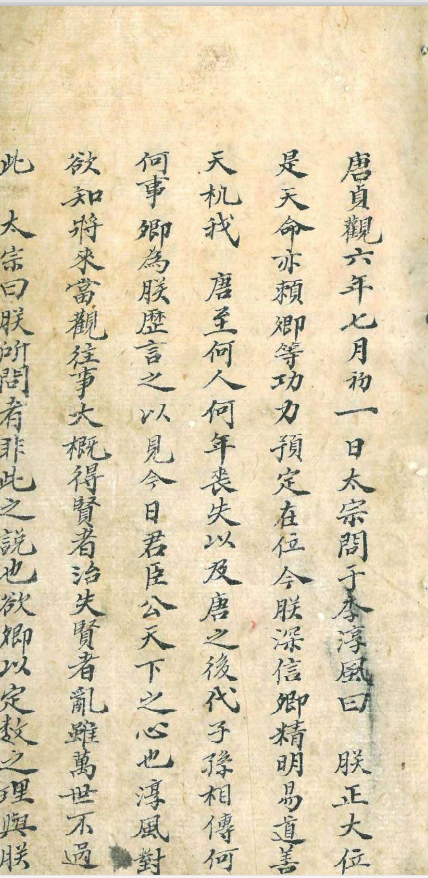 唐貞觀六年七月初一日太宗問于李淳風曰　朕正大位
是天命亦賴卿等功力預定在位今朕深信卿精明易道善
天机我　唐至何人何年喪失以及唐之後代子孫相傳何
何事卿為朕歷言之以見今日君臣公天下之心也淳風對
欲知將來當觀往事大概得賢者治失賢者亂雖萬世不過
此　太宗曰朕所問者非此之說也欲卿以定数之理與朕